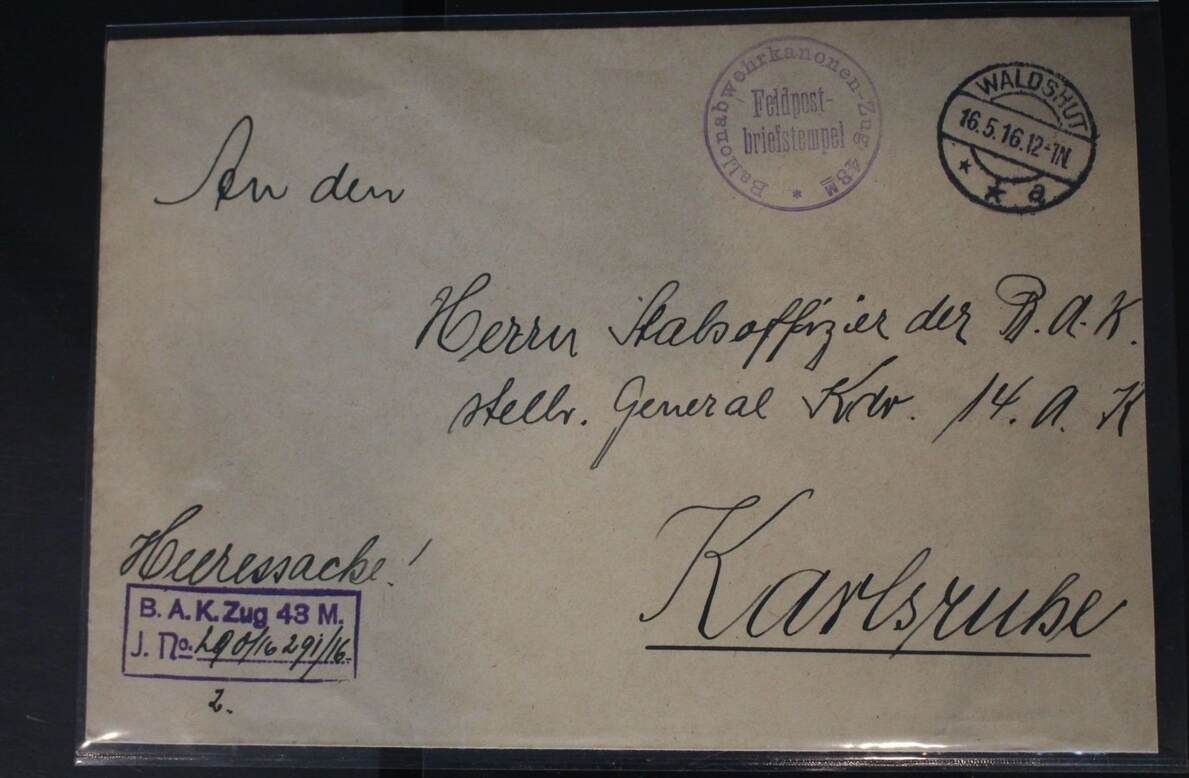 Ballonabwehrkanonen-Zug 43 M *
Feldpost-
briefstempel
WALDSHUT
16.5.16.12-1N.
* * a
An den
Herrn Stabsoffizier der B.A.K.
stellv. General Kdo. 14. A. K
Karlsruhe
Heeressache!
B. A. K. Zug 43 M.
J. No. 290/16 291/16.
2.